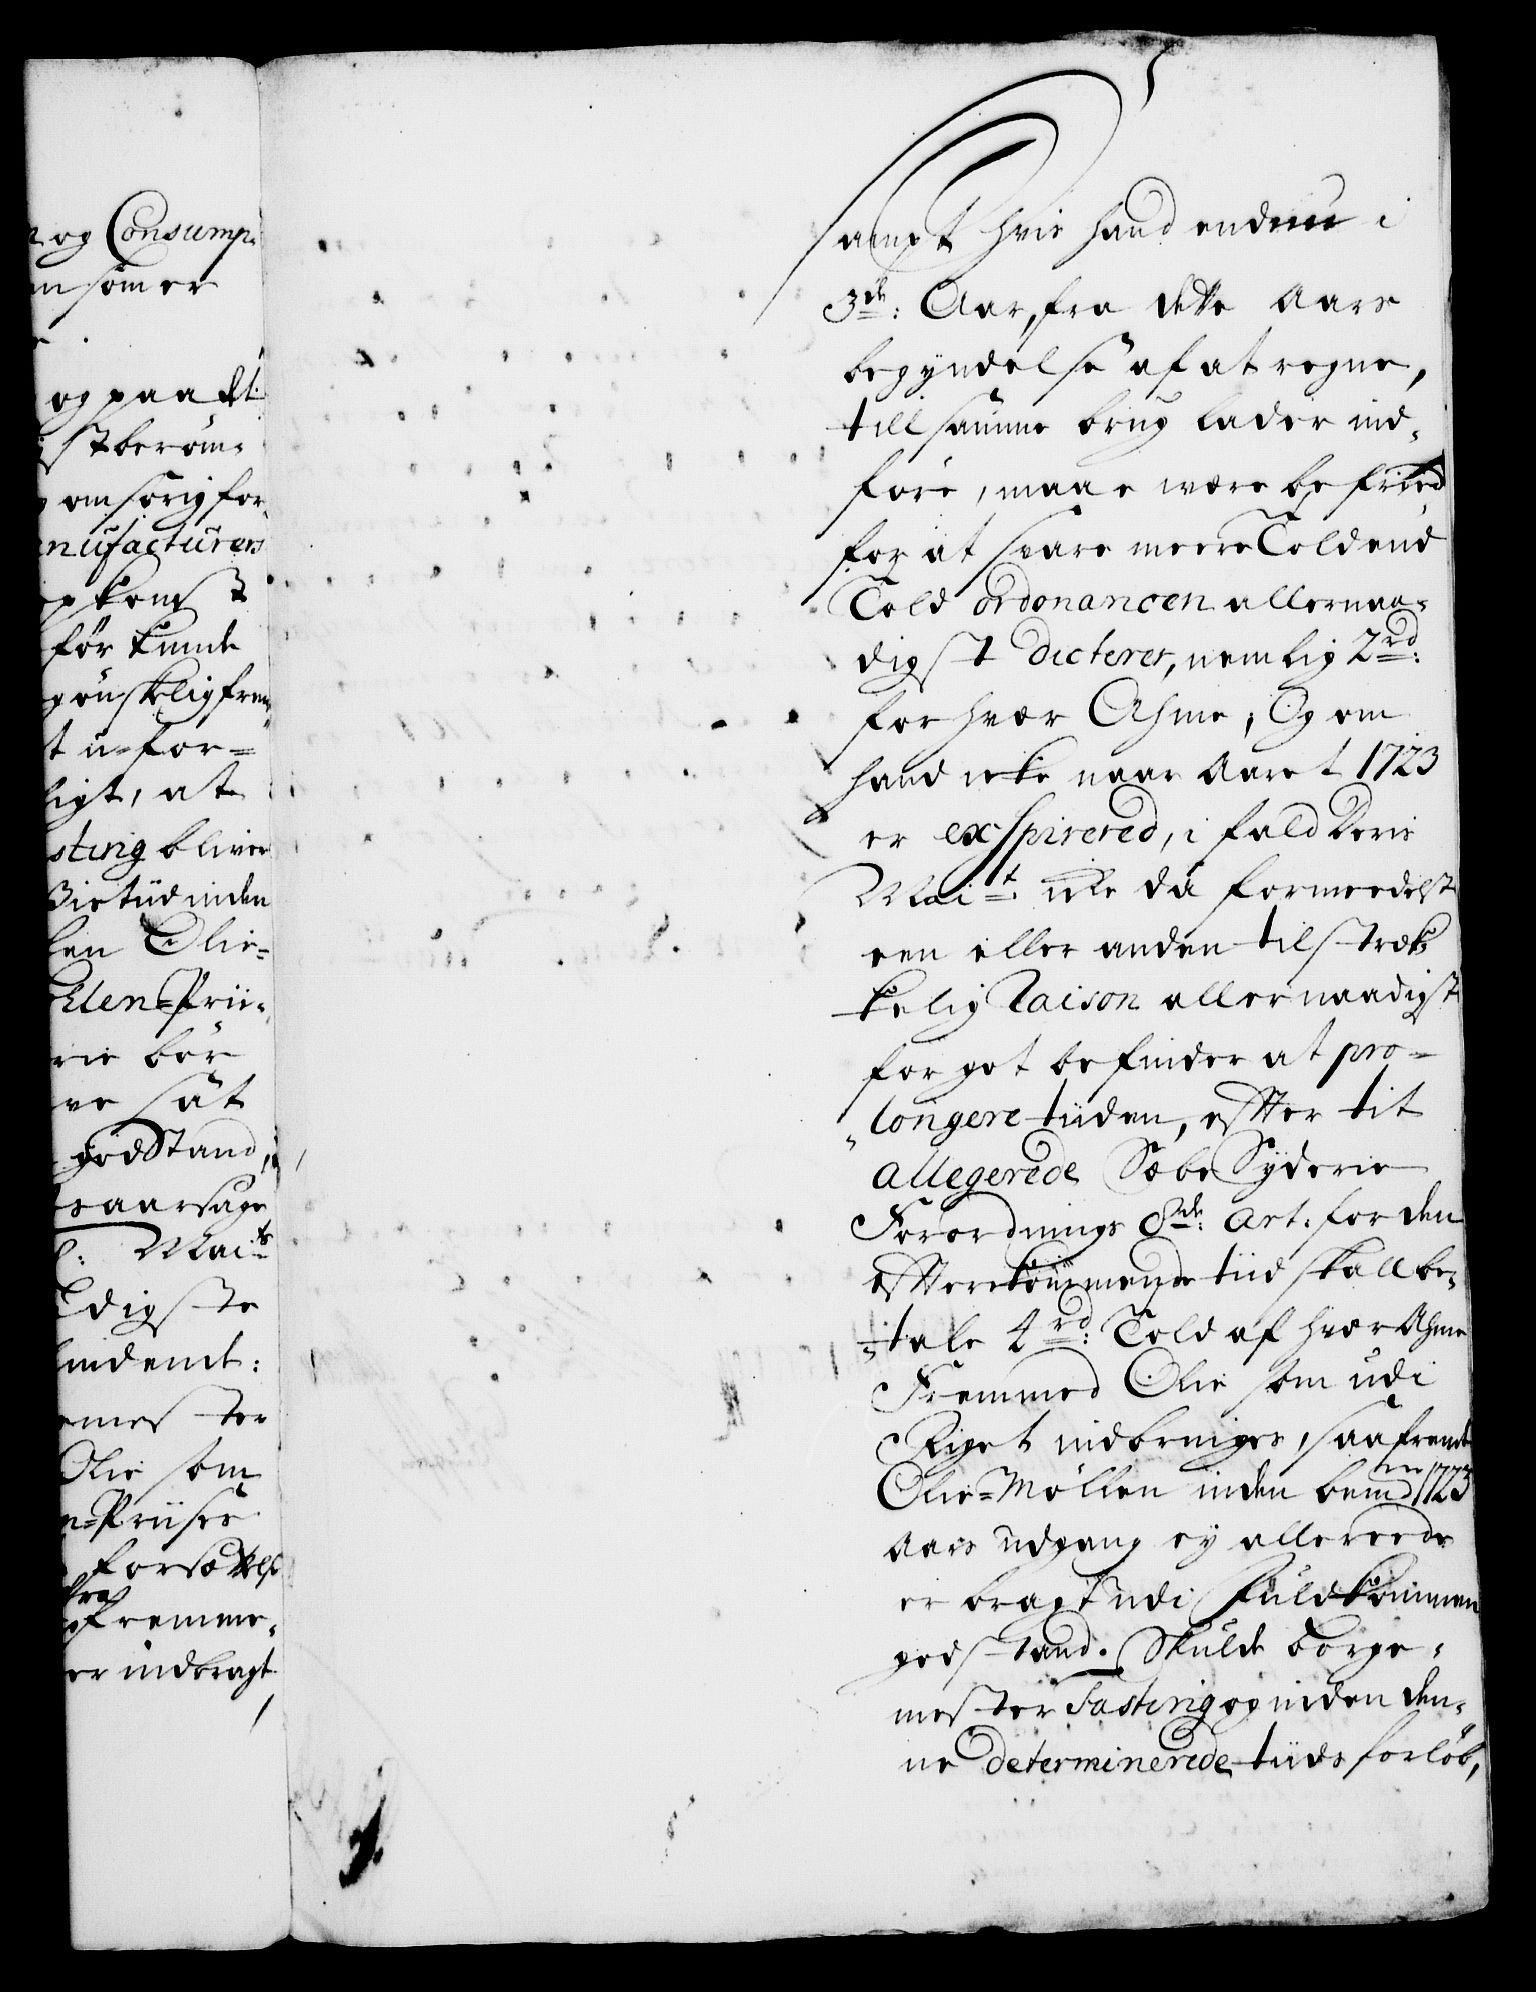 og Consump-
som er
og paa dt
st berøm-
omsorig for
nufacturers
pkomst
før kunde
ønskelig frem
t u-for-
ligt, at
sting bliver
tiid inden
Olie-
Prii-
bør
ve sat
god Stand,
aarsage
Mai:ts
digste
indent:
mester
Olie som
n-Priiser
forsættelse
fremme-
er indbragt
sampt hvis hand endnu i
3de: Aar, fra dette Aars
begyndelse af at regne,
till samme brug lader ind-
føre, maae være befried
for at svare meere Told end
Told ordonancen allernaa-
digst dicterer, nemlig 2rd:
for hver Ahme; Og om
hand icke naar Aaret 1723
er exspirered, i fald Deris
Mai:t icke da formeedelst
een eller anden tilstræk-
kelig Raison allernaadigst
for got befinder at pro-
longere tiiden, efter tit
allegerede Sæbe Syderie
Forordnings 8de: Art: for den
efterkommende tiid skall be-
tale 4rd: Told af hver Ahme
Fremmed Olie som udi
Riget indbringes, saafremt
Olie-Møllen inden bemte 1723
Aars udgang ey allereede
er bragt udi Fuldkommen
god stand. Skulde Borge-
mester Fasting og inden den-
ne determinerede tiids forløb,